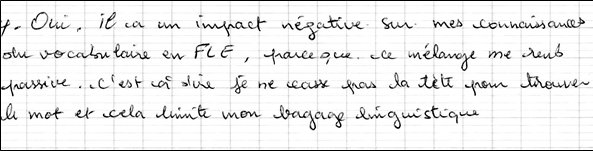 4. Oui, il a un impact négative sur mes connaissances
du vocabulaire en FLE, parce que ce mélange me rend
passive. C'est à dire je ne casse pas la tête pour trouver
le mot et cela limite mon bagage linguistique